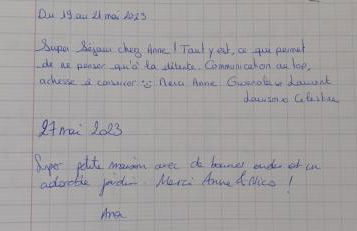 Du 19 au 21 mai 2023
Super Séjour chez Anne ! Tout y est, ce qui permet
de ne penser qu'à la détente. Communication au top,
adresse à conserver :) Merci Anne. Laurent
27 mai 2023
Super petite maison avec de bonnes ondes et un
adorable jardin. Merci Anne & Nico !
Ana